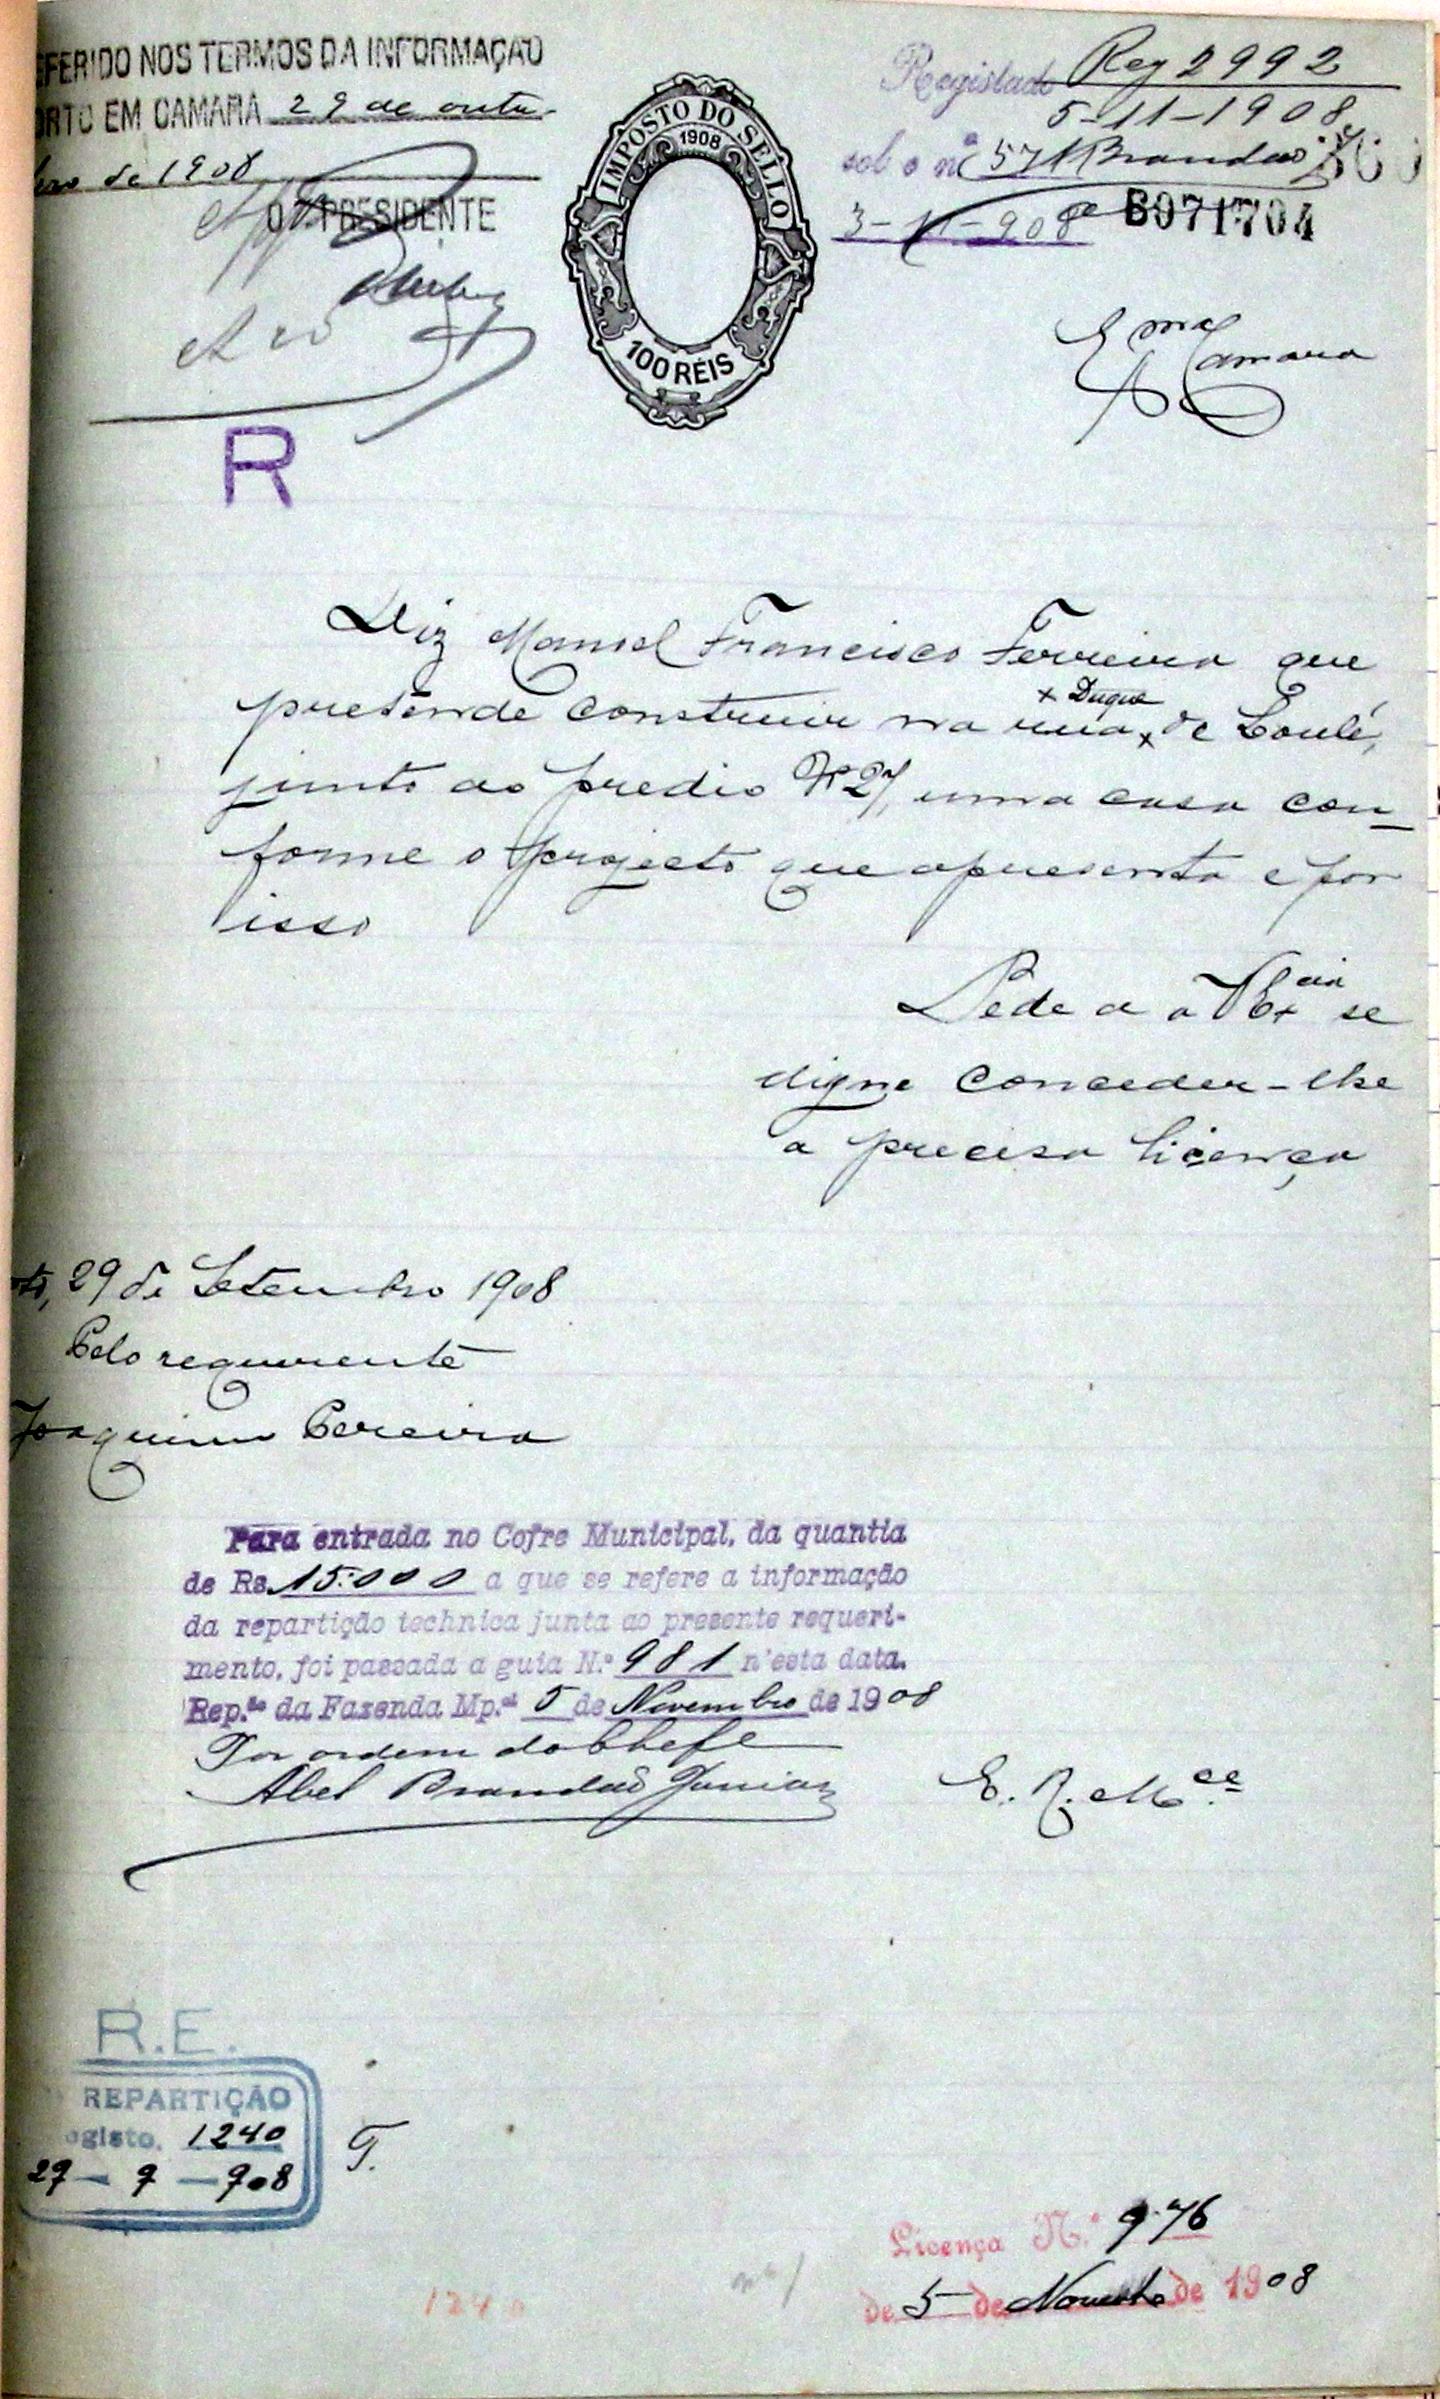 EFERIDO NOS TERMOS DA INFORMAÇÃO
ORTO EM CAMARA 29 de outu-
bro de 1908
O PRESIDENTE
R
IMPOSTO DO SELLO
1908
100 RÉIS
Registado Reg 2992
5-11-1908
sob o nº 571 Brandão
3-11-908
B071704
Exma Camara
Diz Manoel Francisco Ferreira que
pretende construir na rua × de Loulé,
× Duque
junto ao predio Nº 27, uma casa con-
forme o projecto que apresenta e por
isso
Pede a a V Excia se
digne conceder-lhe
a precisa licença
to, 29 de Setembro 1908
Pelo requerente
Joaquim Pereira
Para entrada no Cofre Municipal, da quantia
de Rs. 15:000 a que se refere a informação
da repartição technica junta ao presente requeri-
mento, foi passada a guia N.º 981 n'esta data.
Rep.ão da Fazenda Mp.al 5 de Novembro de 1908
Por ordem do Chefe
Abel Brandão Junior
E. R. Mce.
R.E.
REPARTIÇÃO
egisto. 1240
29 — 9 — 908
T.
Licença N.º 976
de 5 de Novembro de 1908
1240
nº 1